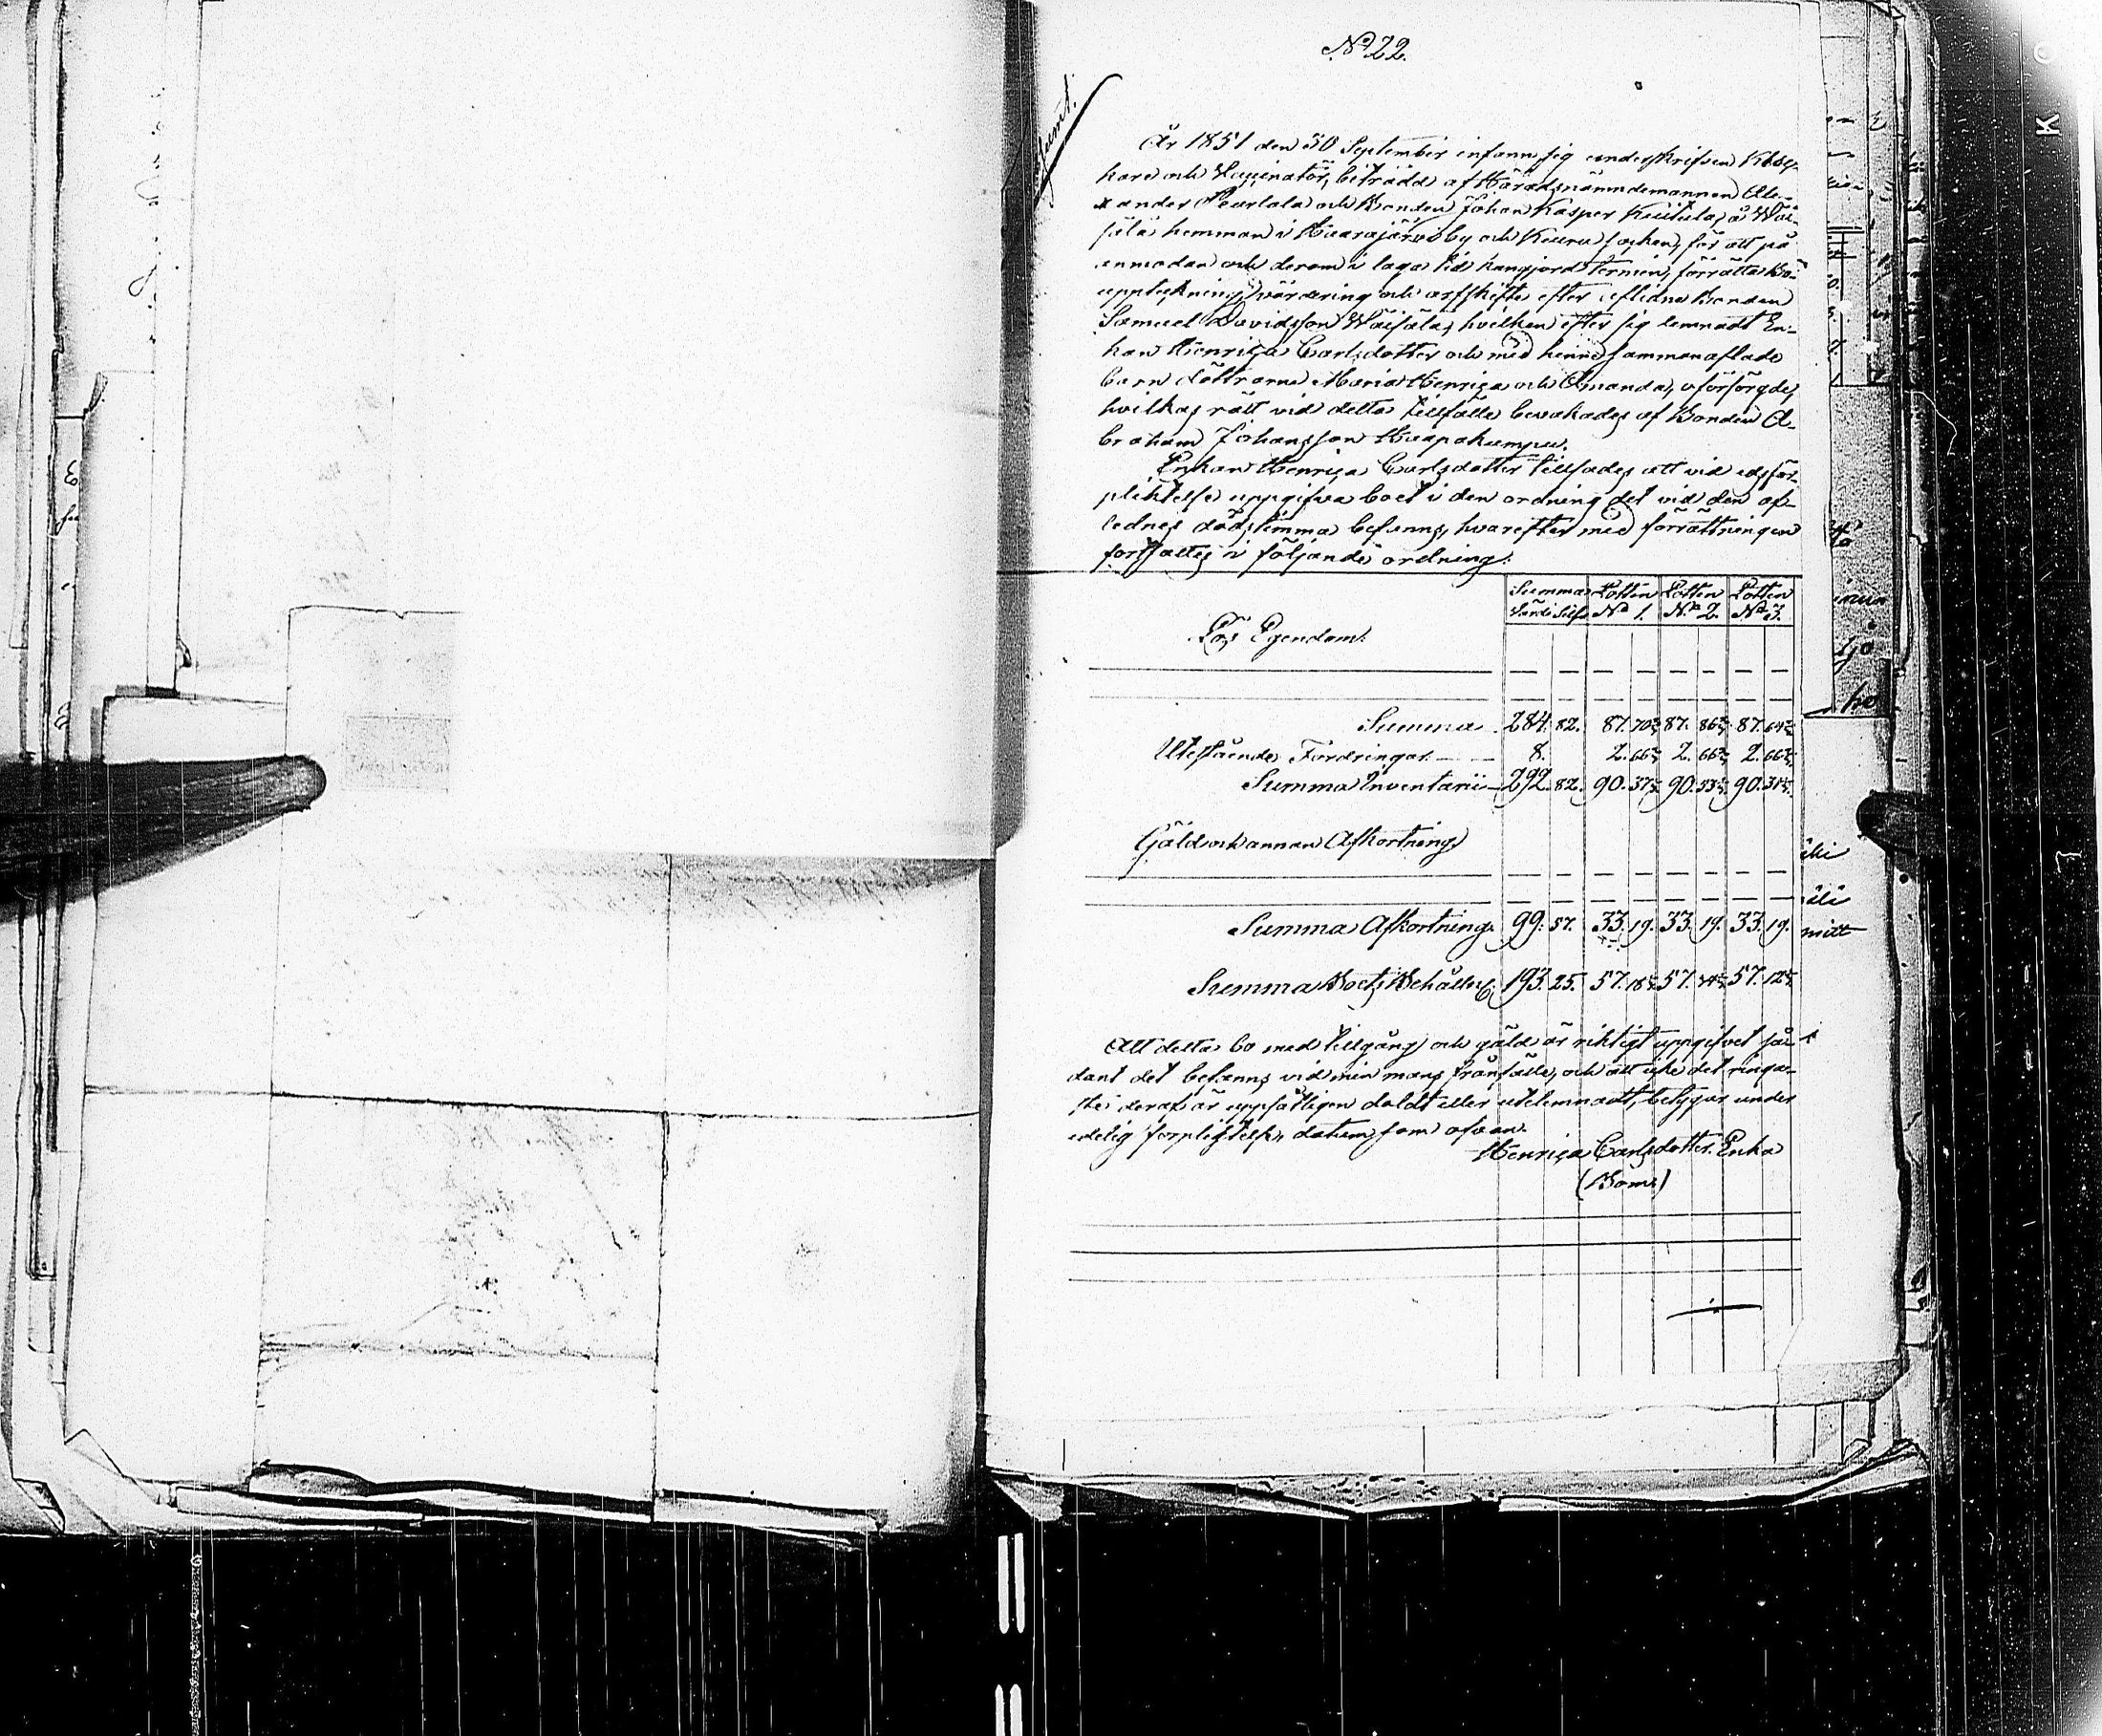 No 22.
År 1851 den 30 September infann sig undeskrifven Klåc-
kare och Vaccinatör, biträdd af Häradsnämndemannen Ale-
xander Peurlala och Bonden Johan Kasper Kuitula, å Wäi-
sälä hemman i Haarajärvi by och Kuru socken, för att på
anmodan och derom i laga tid kungjord termin, förrätta Bo-
uppteckning, värdering och arfskifte efter aflidne Bonden
Samuel Davidsson Wäisälä, hvilken efter sig lemnadt En-
kan Henrica Carlsdotter och med henne samman aflade
barn döttrarne Maria Henrica och Amanda, oförsörgde,
hvilkas rätt vid detta tillfälle bevakades af Bonden A-
braham Johansson Haapakumpu.
Enkan Henrica Carlsdotter tillsades att vid edsför-
pliktelse uppgifva boet i den ordning det vid den af-
lednes dödstimma befanns, hvarefter med förrättningen
fortsattes i följande ordning:
Summa Lotten Lotten Lotten
Värde Silfv. No 1. No 2. No 3.
Lös Egendom.
Summa 284. 82. 87. 70 87. 86 87. 64
Utestående Fordringar 8. 2. 66 2. 66 2. 66
Summa Inventarii 292. 82. 90. 37 90. 53 90. 31
Gäld och annan Afkortning
Summa Afkortning. 99. 57. 33. 19. 33. 19. 33. 19.
Summa Boets Behålln. 193. 25. 57. 18 57. 57. 12
Att detta bo med tillgång och gäld är riktigt uppgifvet så-
dant det befanns vid min mans frånfälle, och att icke det ringa-
ste deraf är uppsåtligen doldt eller utelemnadt, betygar under
edelig förpligtelse, datum som ofvan.
Henrica Carlsdotter. Enka
(Bom.)